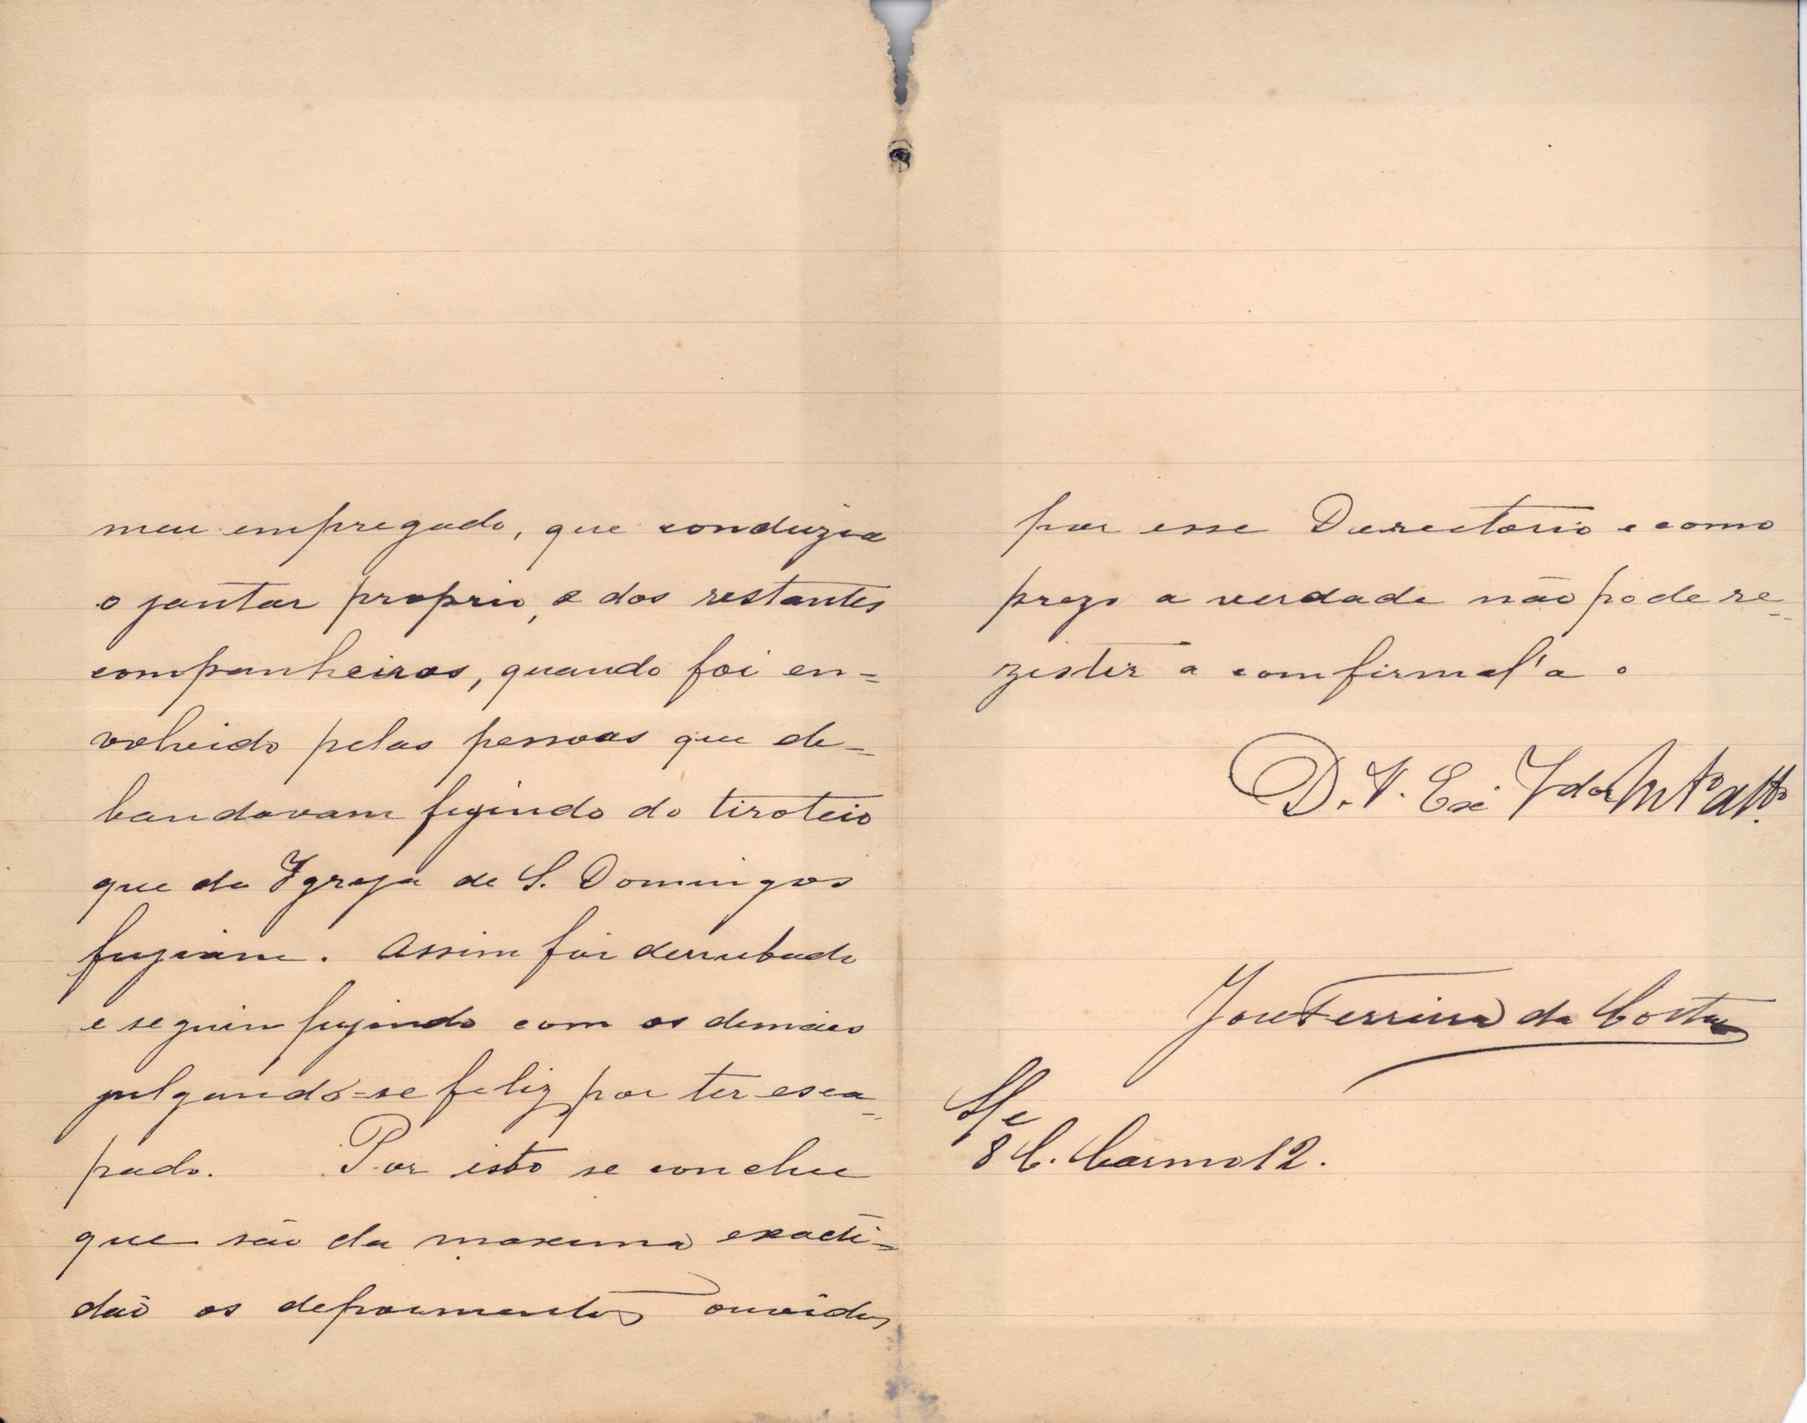 meu empregado, que conduzia
o jantar proprio, e dos restantes
companheiros, quando foi en=
volvido pelas pessoas que de=
bandavam fugindo do tiroteio
que da Igreja de S. Domingos
fugiam. Assim foi derrubado
e seguiu fugindo com os demais
julgando-se feliz por ter esca=
pado. Por isto se conclue
que são da maxima exacti=
dão os depoimentos ouvidos
por esse Directorio e como
prezo a verdade não pode re=
zistir a comfirmal'a.
D. V. Exª
José Ferreira da Costa
S/c
8 C. Carmo 12.